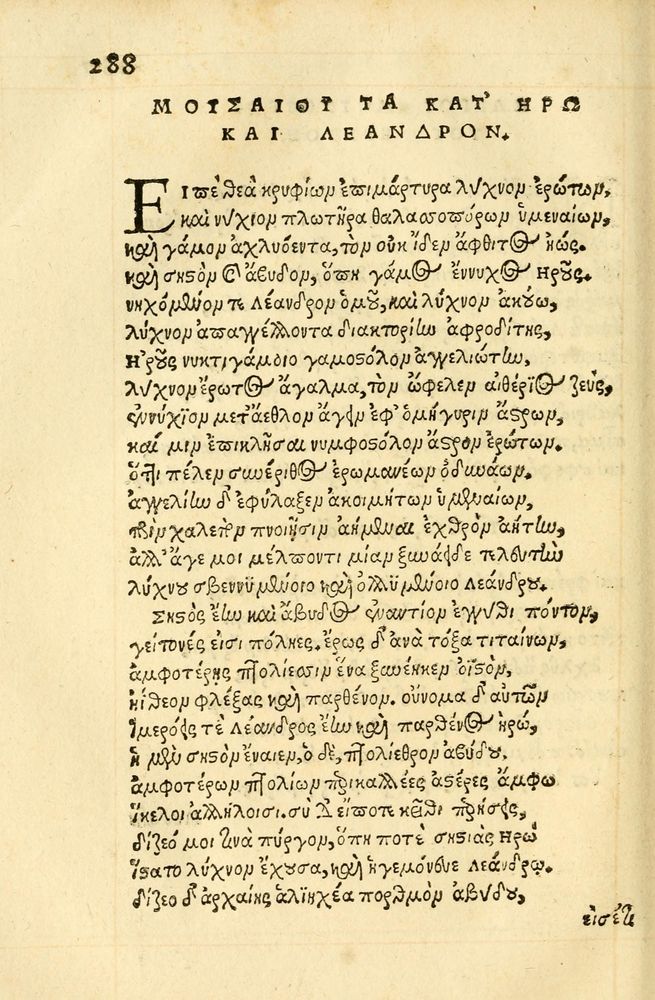 288
ΜΟΥΣΑΙΟΥ ΤΑ ΚΑΤ' ΗΡΩ
ΚΑΙ ΛΕΑΝΔΡΟΝ.
Εἰπὲ θεὰ κρυφίων ἐπιμάρτυρα λύχνον ἐρώτων,
καὶ νύχιον πλωτῆρα θαλασσοπόρων ὑμεναίων,
καὶ γάμον ἀχλυόεντα, τὸν οὐκ ἴδεν ἄφθιτος ἠώς.
καὶ σηστὸν καὶ ἄβυδον, ὅπη γάμος ἔννυχος Ἡροῦς.
νηχόμενόν τε Λέανδρον ὁμοῦ, καὶ λύχνον ἀκούω,
λύχνον ἀπαγγέλλοντα διακτορίην ἀφροδίτης,
Ἡροῦς νυκτιγάμοιο γαμοστόλον ἀγγελιώτην,
λύχνον ἔρωτος ἄγαλμα, τὸν ὤφελεν αἰθέριος ζεύς,
ἐννύχιον μετ' ἄεθλον ἄγειν ἐφ' ὁμήγυριν ἄστρων,
καί μιν ἐπικλῆσαι νυμφοστόλον ἄστρον ἐρώτων.
ὅττι πέλεν συνέριθος ἐρωμανέων ὀδυνάων.
ἀγγελίην δ' ἐφύλαξεν ἀκοιμήτων ὑμεναίων,
πρὶν χαλεπὸν πνοιῇσιν ἀήμεναι ἐχθρὸν ἀήτην,
ἀλλ' ἄγε μοι μέλποντι μίαν ξυνάειδε τελευτὴν
λύχνου σβεννυμένοιο καὶ ὀλλυμένοιο Λεάνδρου.
Σηστὸς ἔην καὶ ἄβυδος ἐναντίον ἐγγύθι πόντου,
γείτονές εἰσι πόληες. ἔρως δ' ἀνὰ τόξα τιταίνων,
ἀμφοτέρῃς πτολίεσσιν ἕνα ξυνέηκεν ὀϊστὸν,
ἠίθεον φλέξας καὶ παρθένον. οὔνομα δ' αὐτῶν
ἱμερόεις τὲ Λέανδρος ἔην καὶ παρθένος ἡρώ,
ἡ μὲν σηστὸν ἔναιεν, ὁ δὲ, πτολίεθρον ἀβύδου.
ἀμφοτέρων πτολίων περικαλλέες ἀστέρες ἄμφω
ἴκελοι ἀλλήλοισι. σὺ δ' εἴποτε κεῖθι περήσεις,
δίζεό μοι τινὰ πύργον, ὅπη ποτὲ σηστιὰς Ἡρώ
ἵστατο λύχνον ἔχουσα, καὶ ἡγεμόνευε Λεάνδρῳ.
δίζεο δ' ἀρχαίης ἁλιηχέα πορθμὸν ἀβύδου,
εἰσέτι